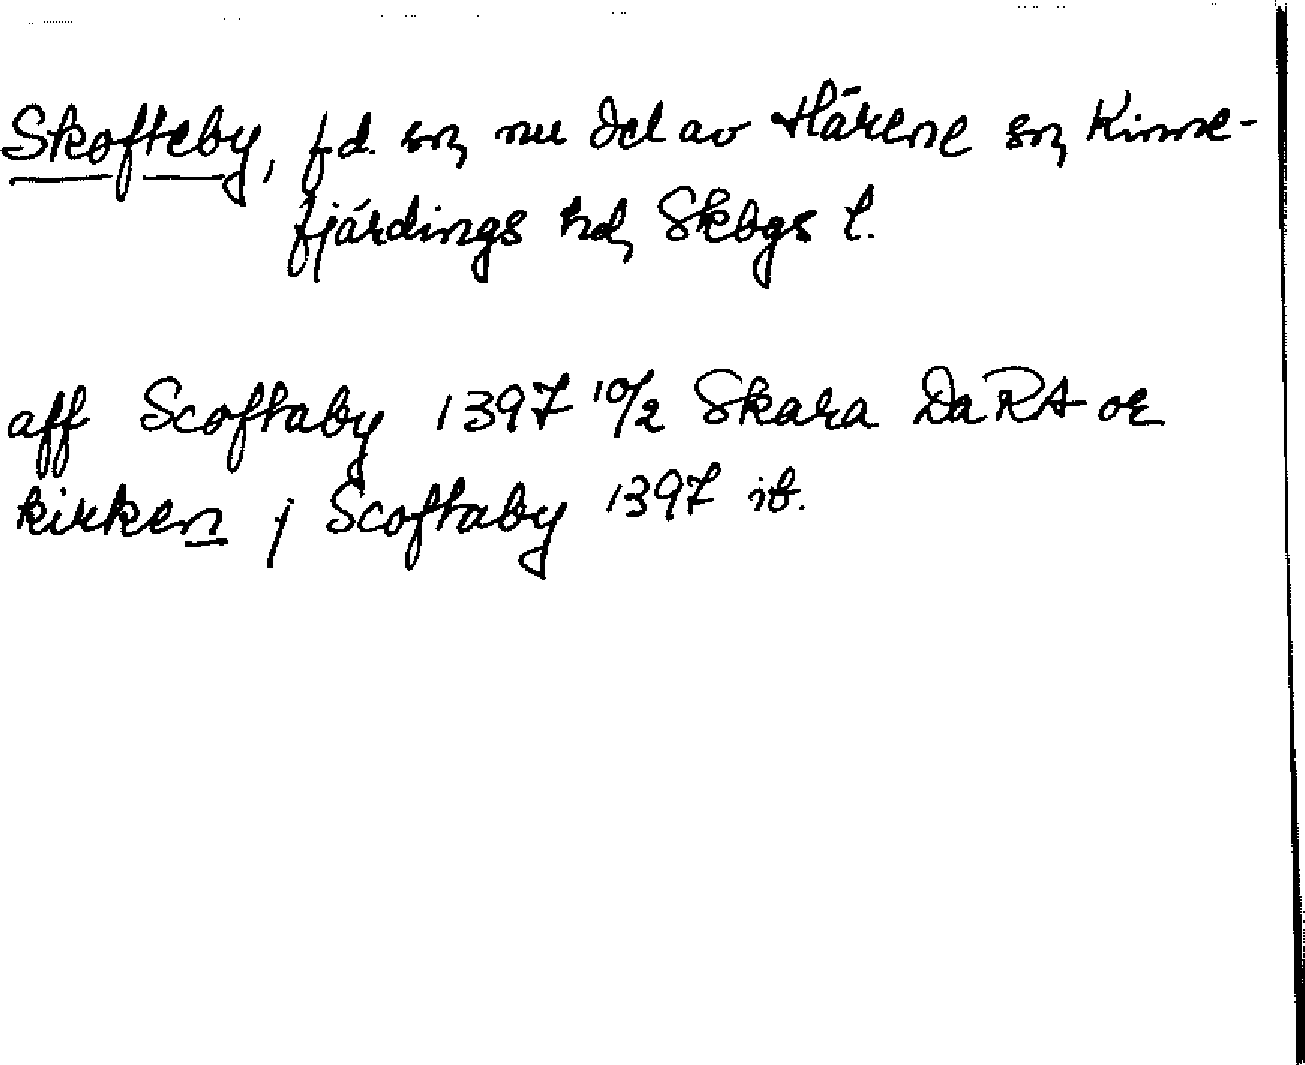 Skofteby, f.d. sn, nu del av Härene sn, Kinne-
fjärdings hd, Skbgs l.
aff Scoftaby 1397 10/2 Skara DaRA or
kirken j Scoftaby 1397 ib.